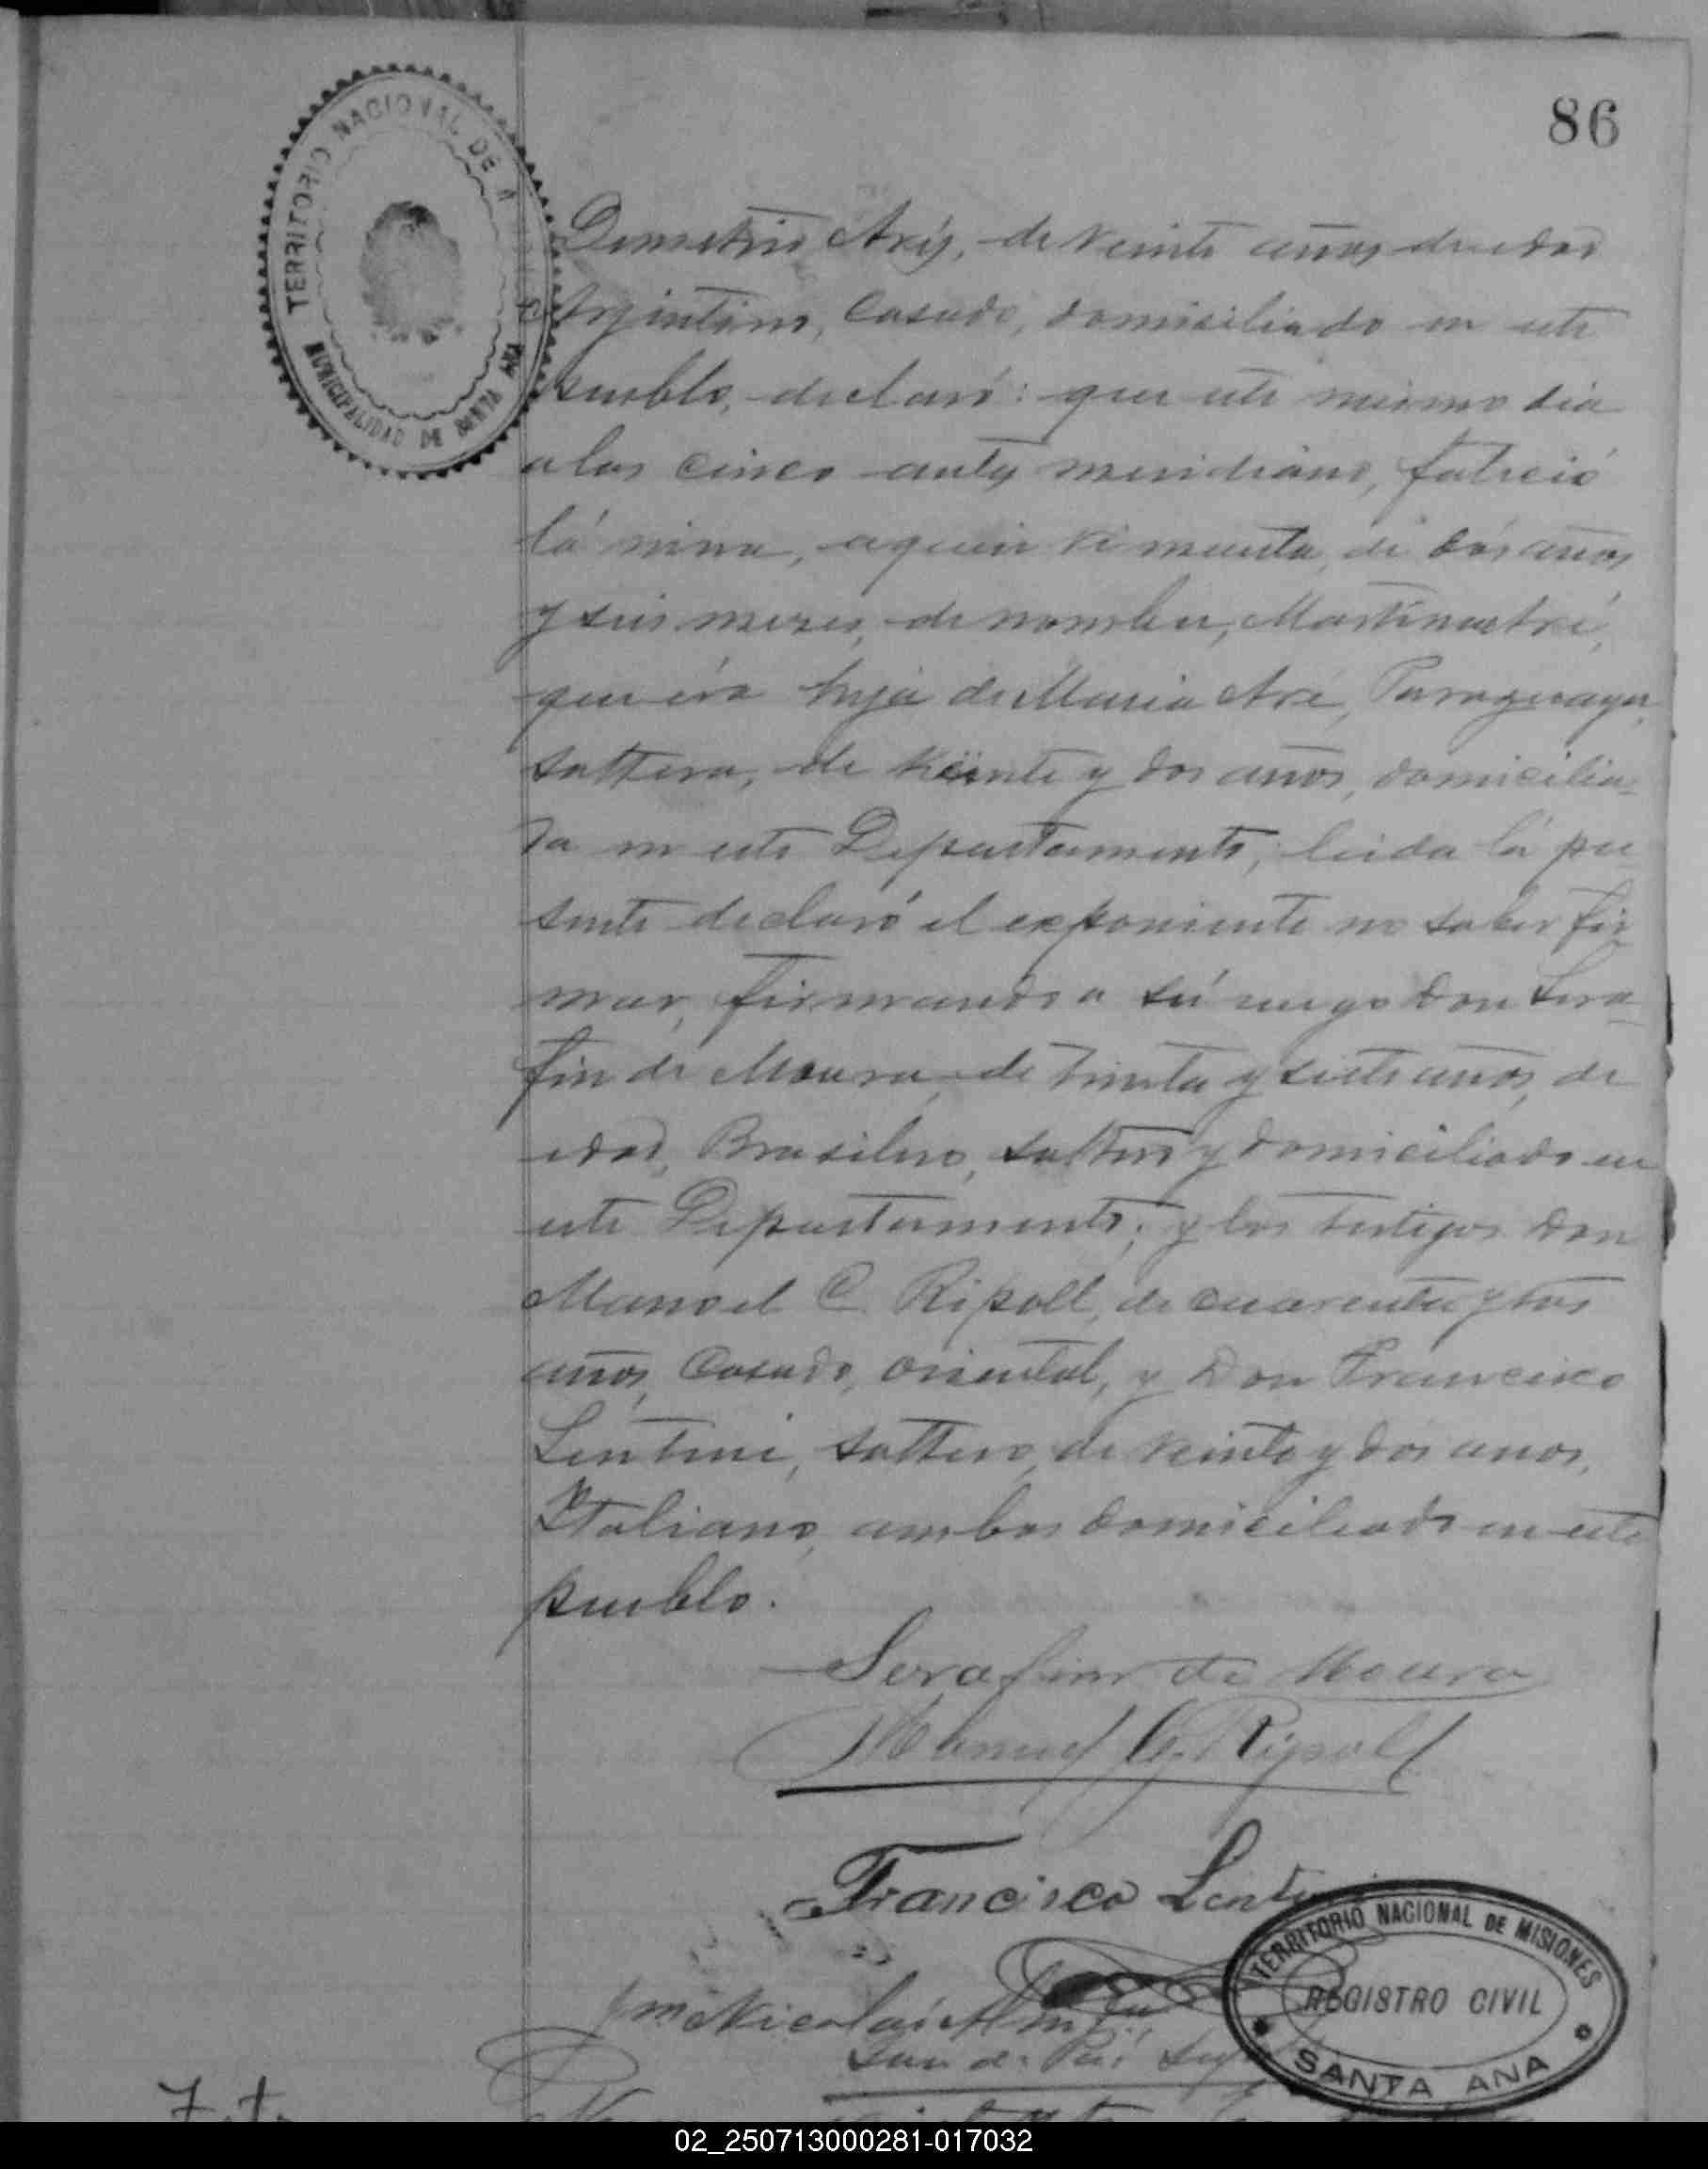 86
TERRITORIO NACIONAL DE M
MUNICIPALIDAD DE SANTA ANA
Demetrio Aré, de veinte años de edad
Argintino, Casado, domisiliado en este
pueblo, declaró: que este mismo dia
a las cinco antes meridiano, falreció
lá nina, a quien vi muerta, de dós años
y seis mezes, de nombre, Martina Aré,
que éra hija de Maria Aré, Paraguaya,
solttera, de veinte y dos años, domicilia=
da en este Departamento; leida lá pre
sente declaró el exponiente no saber fir
mar, firmando a sú ruego Don Sera=
fin de Moura, de trinta y siete años, de
edad, Brasilero, solttero y domiciliado en
este Departamento; y los testigos Don
Manoel C. Ripoll, de cuarenta y tres
años, Casado, oriental, y Don Francisco
Lentini, solttero, de veinte y dos anos,
Italiano, ambos domiciliado en este
pueblo.
Serafim de Moura
Manuel G. Ripoll
Francisco Lentini
Juez de Paz
TERRITORIO NACIONAL DE MISIONES
REGISTRO CIVIL
SANTA ANA
02_250713000281-017032